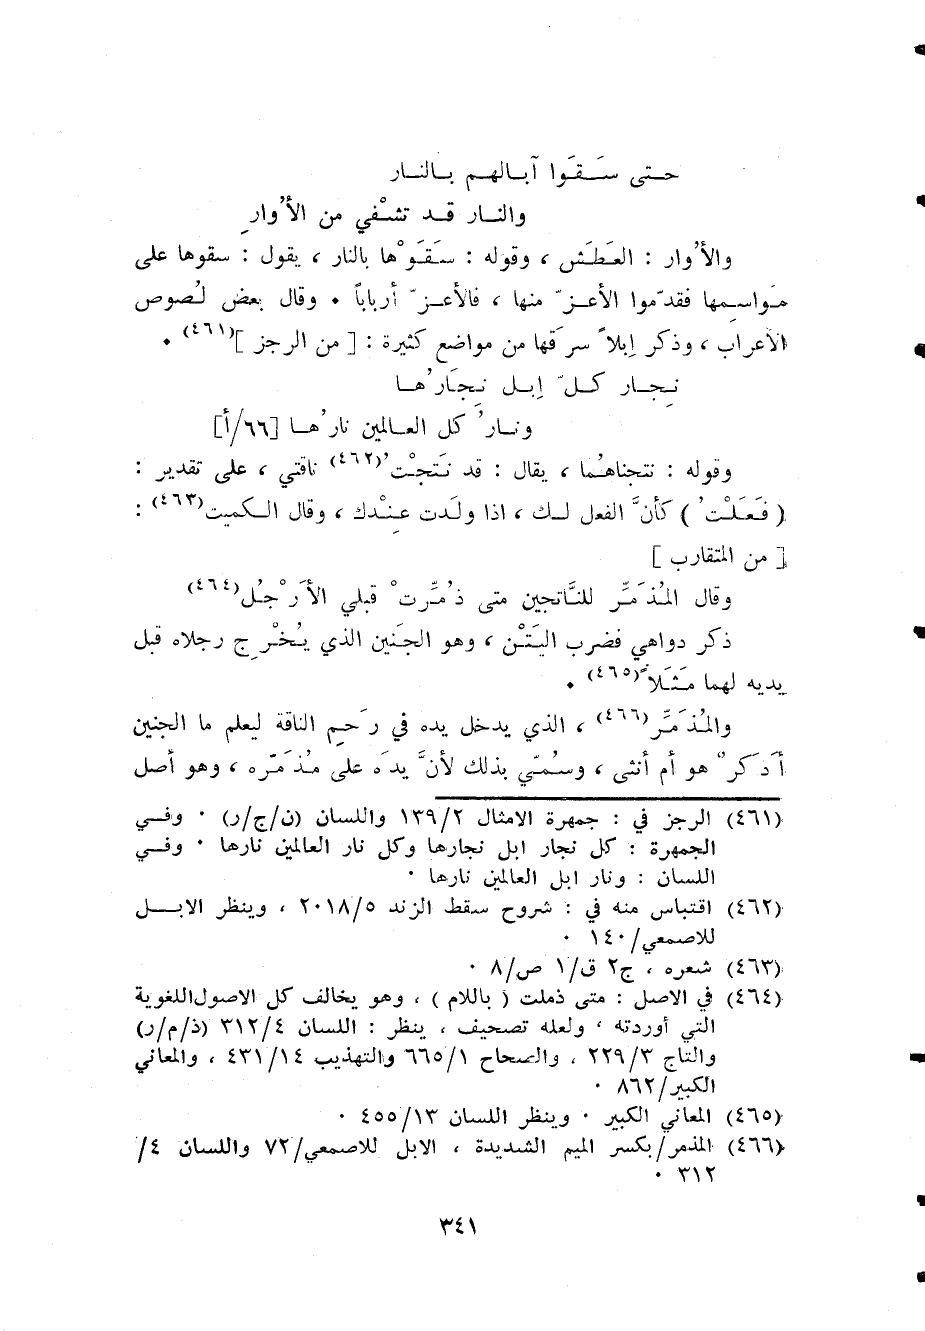 حتى سَقَوا آبالهم بالنار
والنار قد تشْفي من الأُوارِ
والأُوار : العَطَش ، وقوله : سَقَوْها بالنار ، يقول : سقوها على
مَواسِمها فقدّموا الأعزّ منها ، فالأعزّ أرباباً ٠ وقال بعض لُصوص
الأعراب ، وذكر إبلاً سرَقها من مواضع كثيرة : [ من الرجز ](٤٦١) ٠
نِجار كلّ إبل نِجَارُها
ونارُ كل العالمين نارُها [٦٦/أ]
وقوله : نتجناهُما ، يقال : قد نَتَجْتُ(٤٦٢) ناقتي ، على تقدير :
( فَعَلْتُ ) كأنَّ الفعل لك ، اذا ولَدت عِنْدك ، وقال الكميت(٤٦٣) :
[ من المتقارب ]
وقال المُذَمِّر للنَّاتجين متى ذُمِّرتْ قبلي الأَرْجُل(٤٦٤)
ذكر دواهي فضرب اليَتْن ، وهو الجَنين الذي يُخْرِج رجلاه قبل
يديه لهما مَثَلاً(٤٦٥) ٠
والمُذَمِّر(٤٦٦) ، الذي يدخل يده في رَحِم الناقة ليعلم ما الجنين
أَذَكَرٌ هو أم أنثى ، وسُمّي بذلك لأنَّ يدَه على مُذَمَّره ، وهو أصل
(٤٦١) الرجز في : جمهرة الامثال ١٣٩/٢ واللسان (ن/ج/ر) ٠ وفي
الجمهرة : كل نجار ابل نجارها وكل نار العالمين نارها ٠ وفي
اللسان : ونار ابل العالمين نارها ٠
(٤٦٢) اقتباس منه في : شروح سقط الزند ٢٠١٨/٥ ، وينظر الابل
للاصمعي/١٤٠ ٠
(٤٦٣) شعره ، ج٢ ق/١ ص/٨ ٠
(٤٦٤) في الاصل : متى ذملت ( باللام ) ، وهو يخالف كل الاصول اللغوية
التي أوردته ، ولعله تصحيف ، ينظر : اللسان ٣١٢/٤ (ذ/م/ر)
والتاج ٢٢٩/٣ ، والصحاح ٦٦٥/١ والتهذيب ٤٣١/١٤ ، والمعاني
الكبير/٨٦٢ ٠
(٤٦٥) المعاني الكبير ٠ وينظر اللسان ٤٥٥/١٣ ٠
(٤٦٦) المذمر/بكسر الميم الشديدة ، الابل للاصمعي/٧٢ واللسان ٤/
٣١٢ ٠
٣٤١